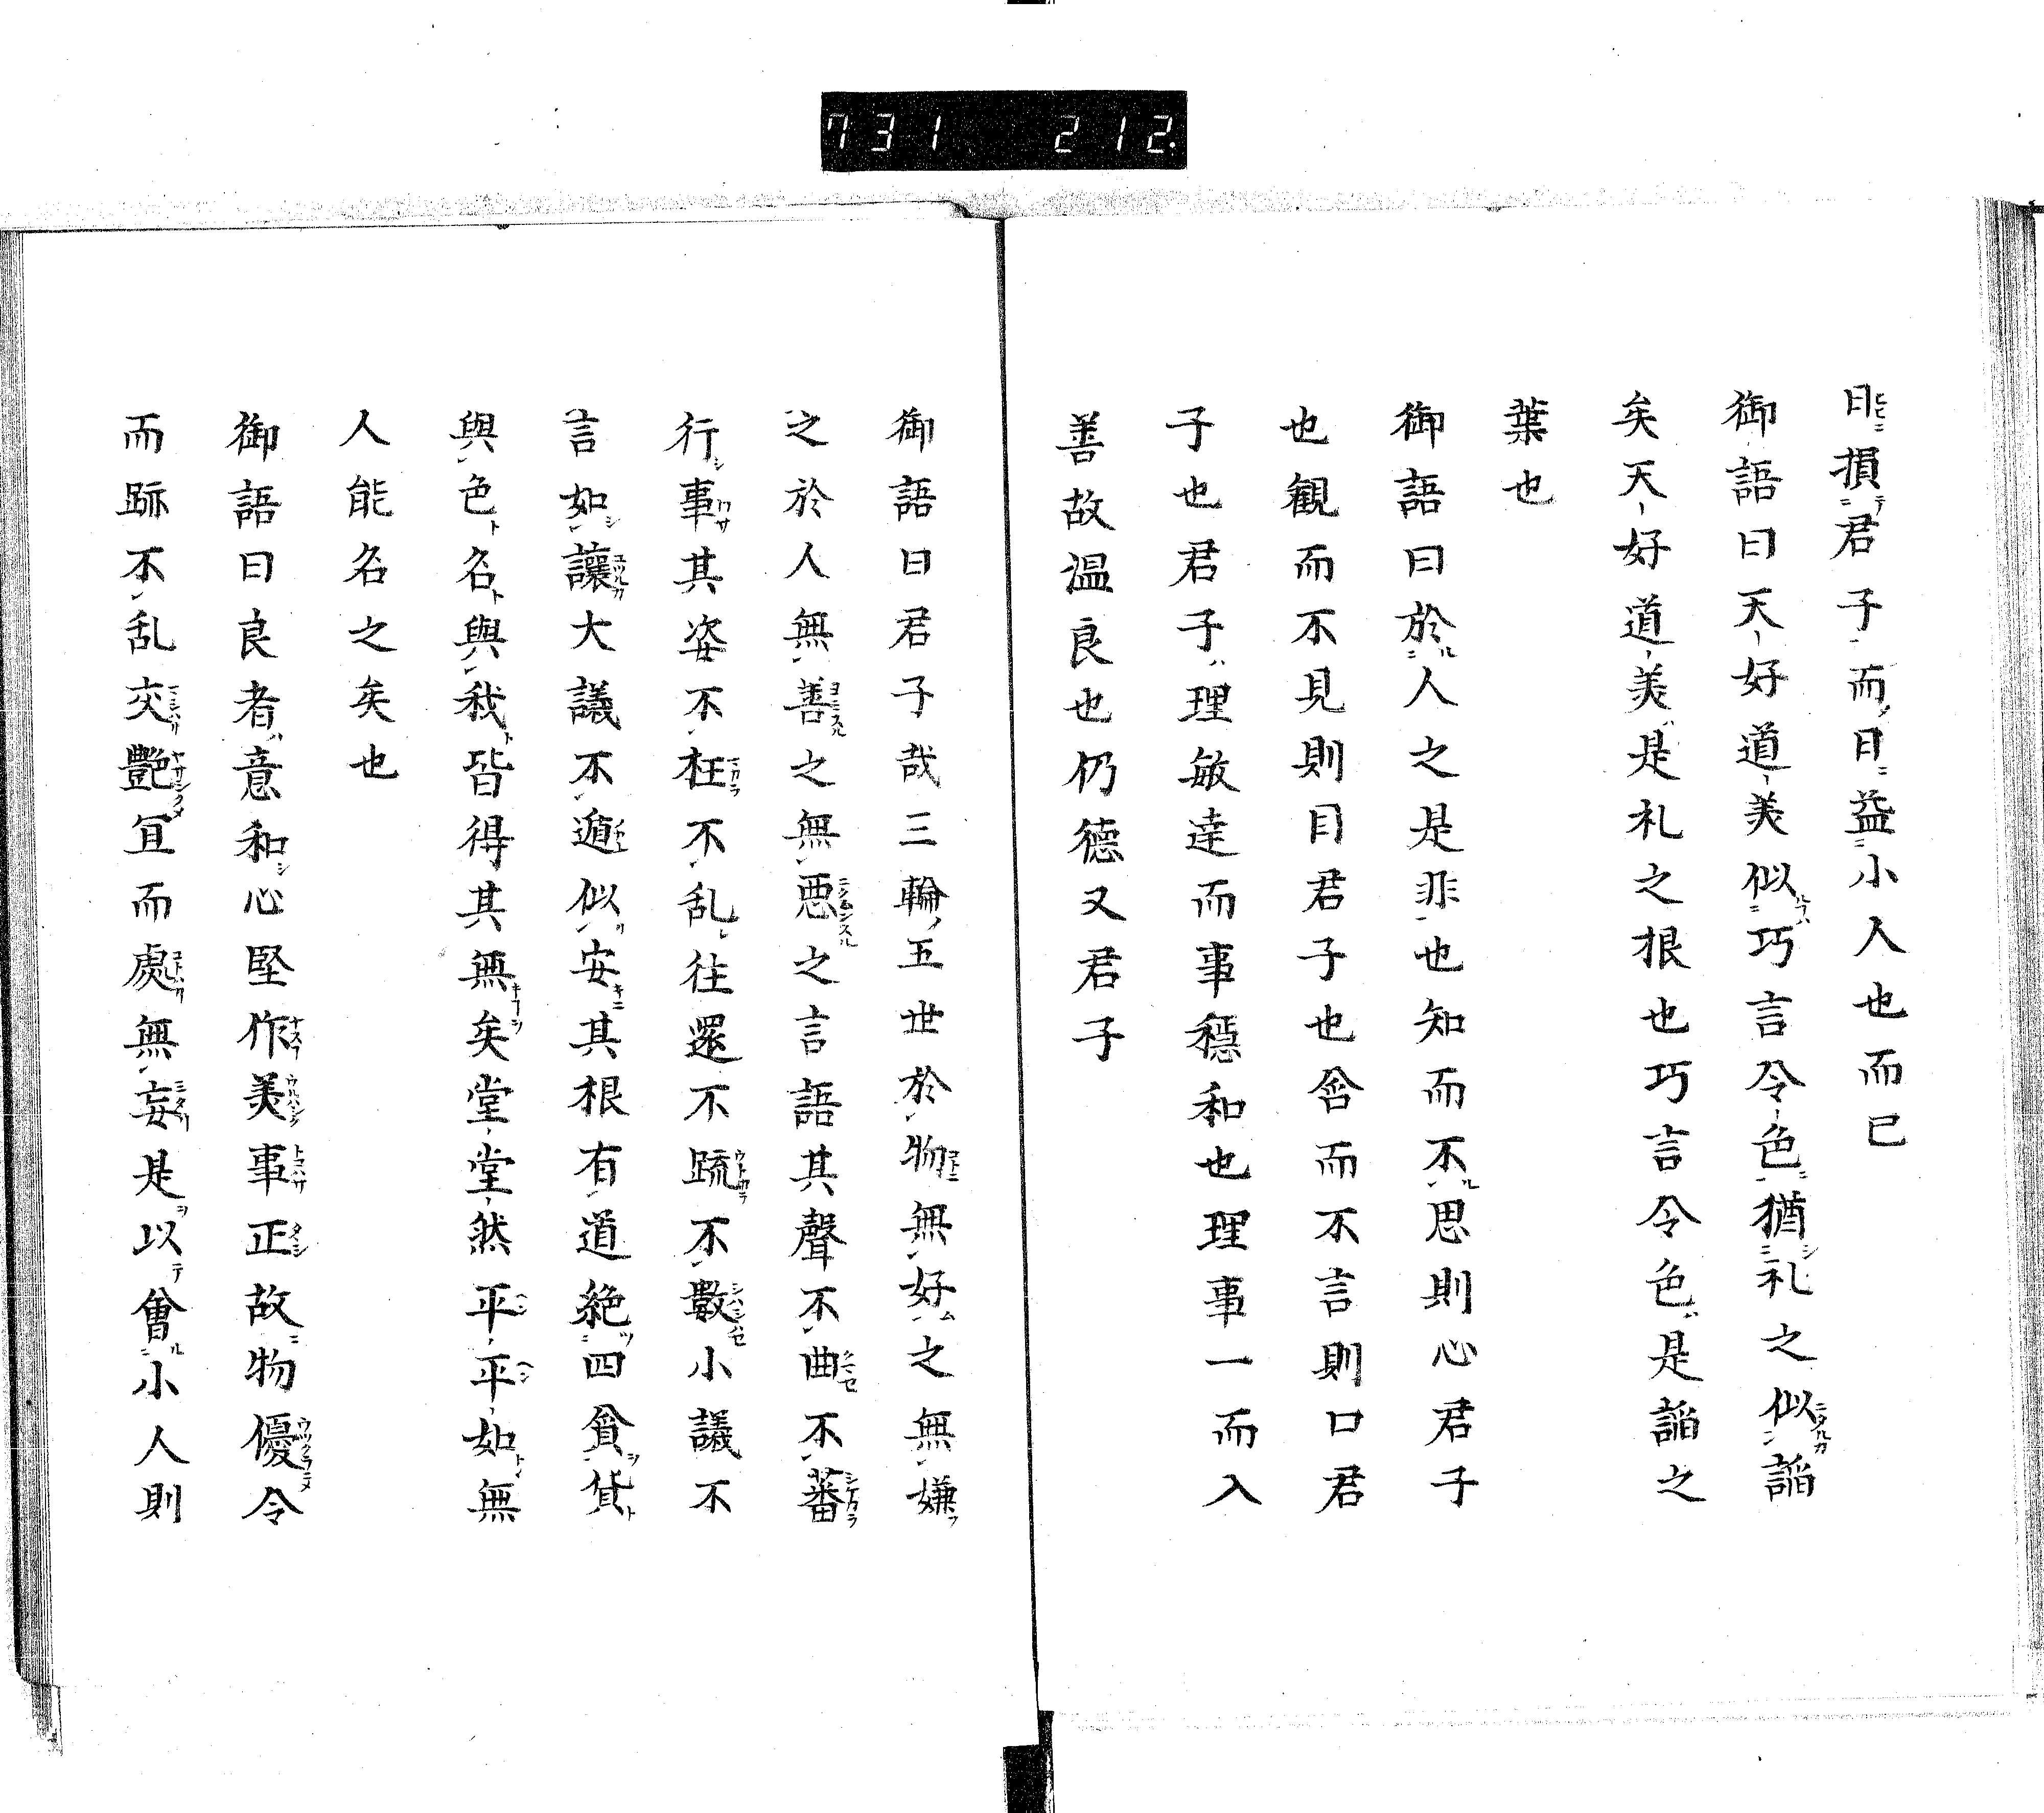 731 212.
日損君子而日益小人也而已
御語曰天好道美似巧言令色猶礼之似諂
矣天好道美是礼之根也巧言令色是諂之
葉也
御語曰於人之是非也知而不思則心君子
也観而不見則目君子也含而不言則口君
子也君子理敏達而事穏和也理事一而入
善故温良也仍徳又君子
御語曰君子哉三輪五世於物無好之無嫌
之於人無善之無悪之言語其聲不曲不蕃
行事其姿不枉不乱往還不疏不數小議不
言如讓大議不遁似安其根有道絶四貪貸
與色名與我皆得其無矣堂堂然平平如無
人能名之矣也
御語曰良者意和心堅作美事正故物優令
而跡不乱交艶宜而處無妄是以會小人則